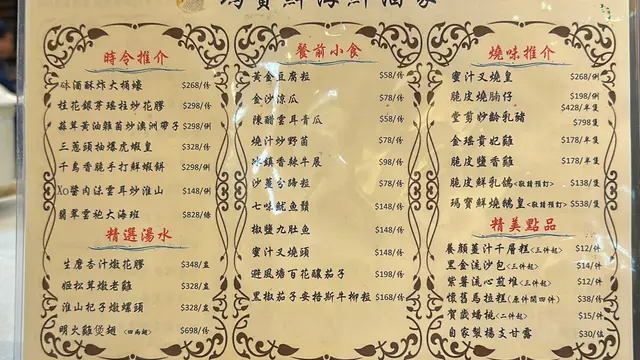 時令推介
砵酒酥炸大桶蠔 $268/件
桂花銀芽瑤柱炒花膠 $298/件
蒜茸黃油雜菌炒澳洲帶子 $298/例
三葱頭抽爆虎蝦皇 $328/件
千島香脆手打鮮蝦餅 $298/例
XO醬肉涼雲耳炒淮山 $148/例
翡翠雲袍大海班 $828/條
精選湯水
生磨杏汁燉花膠 $348/盅
姬松茸燉老雞 $328/盅
淮山杞子燉螺頭 $328/盅
明火雞煲翅 <四両翅> $698/件
餐前小食
黃金豆腐粒 $58/件
金沙涼瓜 $78/件
陳醋雲耳青瓜 $58/件
燒汁炒野菌 $78/件
冰鎮香辣牛𦟌 $98/件
沙薑分蹄 $78/件
七味魷魚鬚 $148/件
椒鹽九肚魚 $148/件
蜜汁叉燒頭 $148/件
避風塘百花釀茄子 $198/件
黑椒茄子安格斯牛柳粒 $168/件
燒味推介
蜜汁叉燒皇 $268/例
脆皮燒腩仔 $198/例
堂剪妙齡乳豬 $428/半隻
$798隻
金瑤貴妃雞 $178/半隻
脆皮鹽香雞 $178/半隻
脆皮鮮乳鴿<敬請預訂> $138/隻
瑪寶鮮燒鵝皇<敬請預訂> $538/隻
精美點品
養顏薑汁千層糕<三件起> $12/件
黑金流沙包<三件起> $14/件
紫薯流心煎堆<三件起> $12/件
懷舊馬拉糕<原件開四件> $38/件
賀歲蟠桃<三件起> $15/件
自家製楊支甘露 $30/位